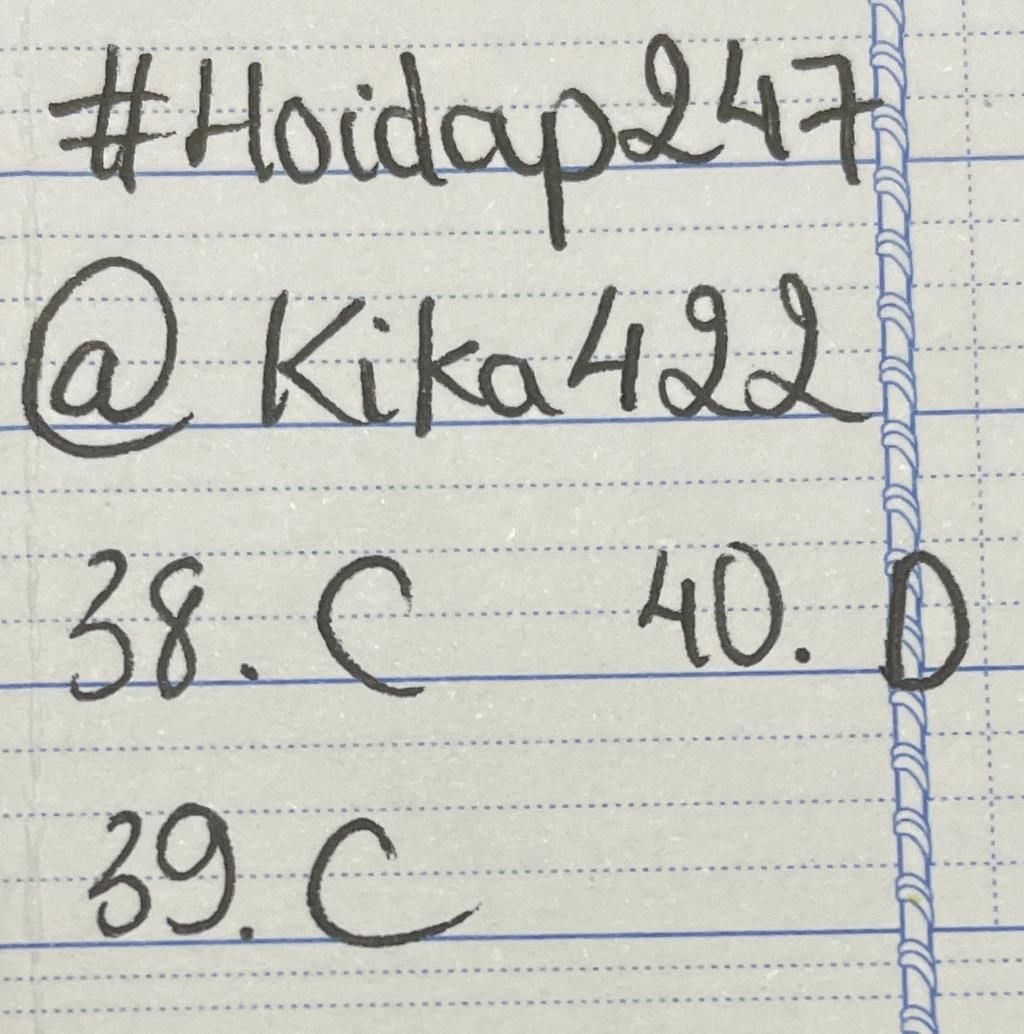 #Hoidap247
@Kika422
38. C 40. D
39. C